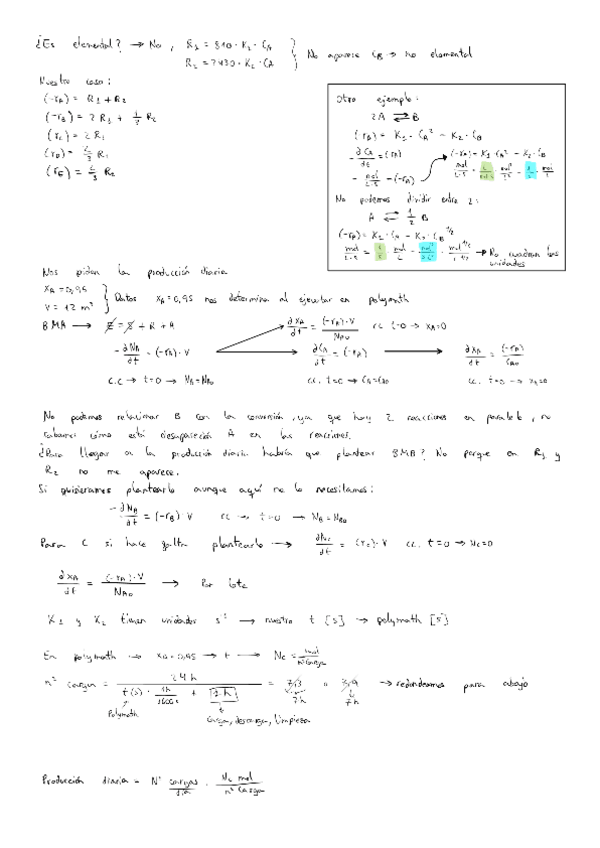 ¿Es elemental? → No, R1 = 810 · K1 · CA
R2 = 7430 · K2 · CA } No aparece CB → no elemental
Nuestro caso:
(-rA) = R1 + R2
(-rB) = 2 R1 + R2
(rC) = 2 R1
Otro ejemplo:
2A ⇄ B
(rA) = K1 · CA² - K2 · CB
(-rA) = K1 · CA² - K2 · CB
No podemos dividir entre 2:
A ⇄ 1/2 B
(-rA) = K1 · CA - K2 · CB^1/2
→ No cuadran las
unidades
Nos piden la producción diaria
XA = 0,95
V = 12 m³ } Datos XA = 0,95 nos determina al ejecutar en polymath
BMA → E = S + R + A
dXA/dt = (-rA) · V / NA0 cc t=0 → XA=0
-dNA/dt = (-rA) · V
dXA/dt = (-rA)/CA0
C.C → t=0 → NA = NA0 cc. t=0 → CA=CA0 cc. t=0 → XA=0
No podemos relacionar B con la conversión, ya que hay 2 reacciones en paralelo, no
sabemos cómo está desaparición A en las reacciones.
¿Para llegar a la producción diaria habría que plantear BMB? No porque en R1 y
R2 no me aparece.
Si quisieramos plantearlo aunque aquí no lo necesitamos:
-dNB/dt = (-rB) · V cc → t=0 → NB = NB0
Para C si hace falta plantearlo → dNC/dt = (rC) · V cc. t=0 → NC=0
dXA/dt = (-rA) · V / NA0 →
K1 y K2 tienen unidades s⁻¹ → nuestro t [s] → polymath [s]
En polymath → XA = 0,95 → t → NC = mol/nº carga
nº cargas = 24 h / (t(s) · 1h/3600s + h) = → redondeamos para abajo
Polymath
carga, descarga, limpieza
Producción diaria = Nº cargas/día · NC mol/nº carga